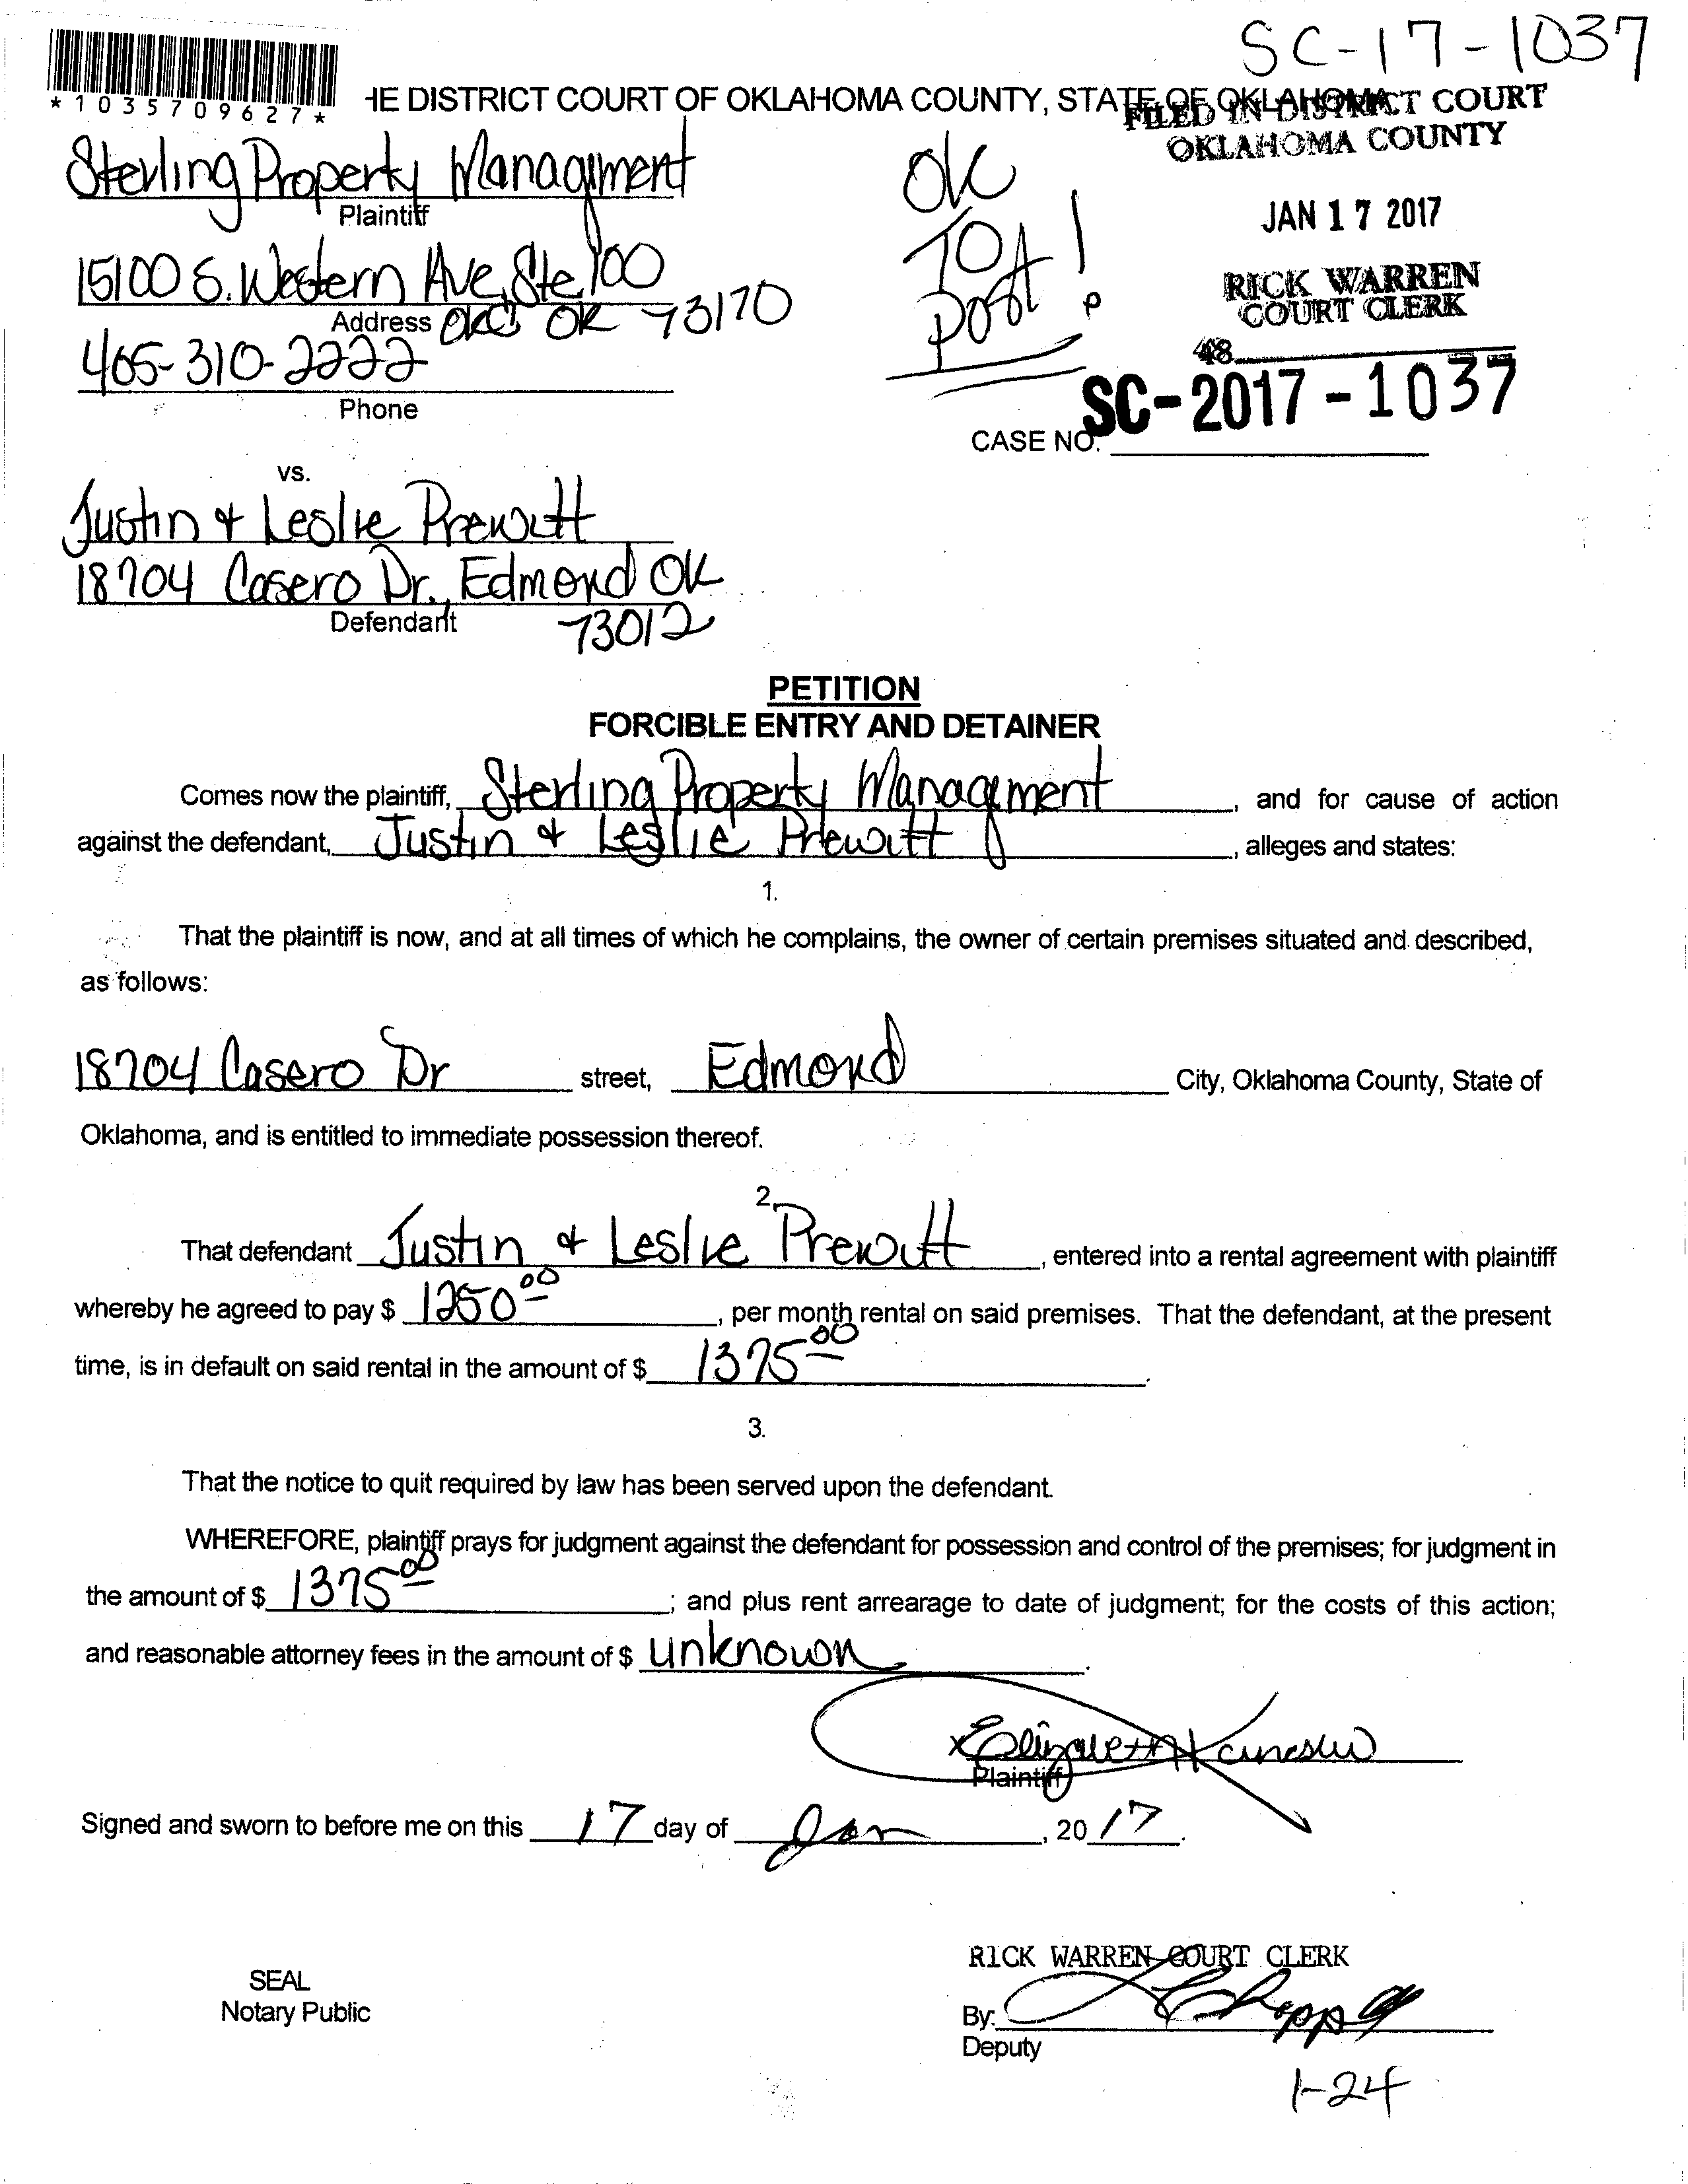 SC-17-1037
*1035709627*
HE DISTRICT COURT OF OKLAHOMA COUNTY, STATE OF OKLAHOMA
FILED IN DISTRICT COURT
OKLAHOMA COUNTY
Sterling Property Management
Plaintiff
OK
TO
Post!
JAN 17 2017
15100 S. Western Ave, Ste 100
Address OKC OK 73170
RICK WARREN
COURT CLERK
405-310-2222
Phone
48
SC-2017-1037
CASE NO.
vs.
Justin & Leslie Prewitt
18704 Casero Dr. Edmond OK
Defendant 73012
PETITION
FORCIBLE ENTRY AND DETAINER
Comes now the plaintiff, Sterling Property Management, and for cause of action
against the defendant, Justin & Leslie Prewitt, alleges and states:
1.
That the plaintiff is now, and at all times of which he complains, the owner of certain premises situated and described,
as follows:
18704 Casero Dr street, Edmond City, Oklahoma County, State of
Oklahoma, and is entitled to immediate possession thereof.
2.
That defendant Justin & Leslie Prewitt, entered into a rental agreement with plaintiff
whereby he agreed to pay $ 1250.00, per month rental on said premises. That the defendant, at the present
time, is in default on said rental in the amount of $ 1375.00.
3.
That the notice to quit required by law has been served upon the defendant.
WHEREFORE, plaintiff prays for judgment against the defendant for possession and control of the premises; for judgment in
the amount of $ 1375.00; and plus rent arrearage to date of judgment; for the costs of this action;
and reasonable attorney fees in the amount of $ unknown.
x Elizabeth
Plaintiff
Signed and sworn to before me on this 17 day of Jan, 2017.
RICK WARREN COURT CLERK
SEAL
Notary Public
By:
Deputy
1-24